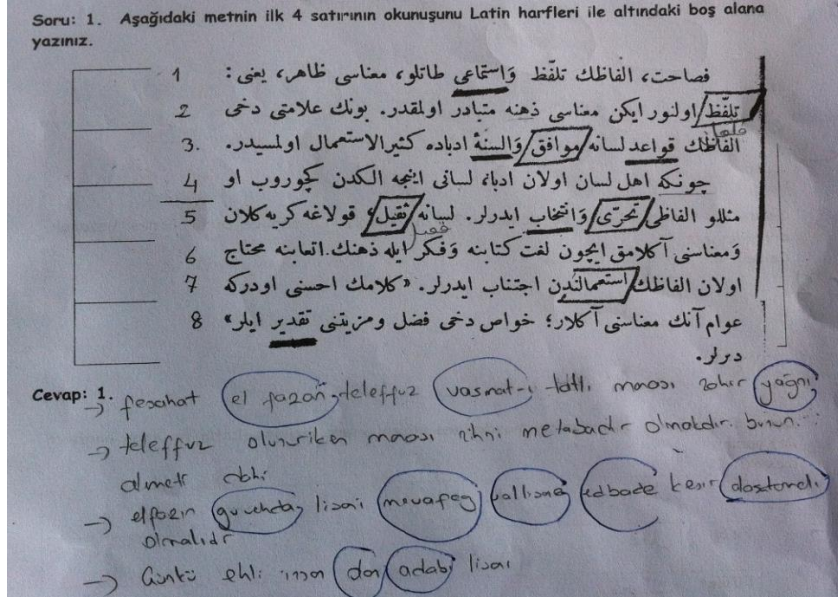 Soru: 1. Aşağıdaki metnin ilk 4 satırının okunuşunu Latin harfleri ile altındaki boş alana
yazınız.
1 فصاحت، الفاظك تلفّظ وَاستماعى طاتلو، معناسى ظاهر، يعنى :
2 تلفّظ اولنور ايكن معناسى ذهنه متبادر اولمقدر. بونك علامتى دخى
3. الفاظك قواعد لسانه موافق وَالسنۀ ادباده كثيرالاستعمال اولمسيدر.
4 چونكه اهل لسان اولان ادبا، لسانى اينجه الكدن كچوروب او
5 مثللو الفاظى تحرّى وَانتخاب ايدرلر. لسانه ثقيل، قولاغه كريه كلان
6 وَمعناسنى آكلامق ايچون لغت كتابنه وَفكر ايله ذهنك اتعابنه محتاج
7 اولان الفاظك استعمالندن اجتناب ايدرلر. «كلامك احسنى اودركه
8 عوام آنك معناسنى آكلار؛ خواص دخى فضل ومزيتنى تقدير ايلر»
ديرلر.
Cevap: 1.
→ fesahat el fazan teleffuz vasmat-ı tatlı manası zahir yağnı
→ teleffuz olunuriken manası zihni metabadır olmakdır. bunun
almetı dahi
→ elfazın guvehda lisai muvafeg vallisne edbade kesir dasatemeli
olmalıdr
→ Günkü ehli insan dan adabı lisai